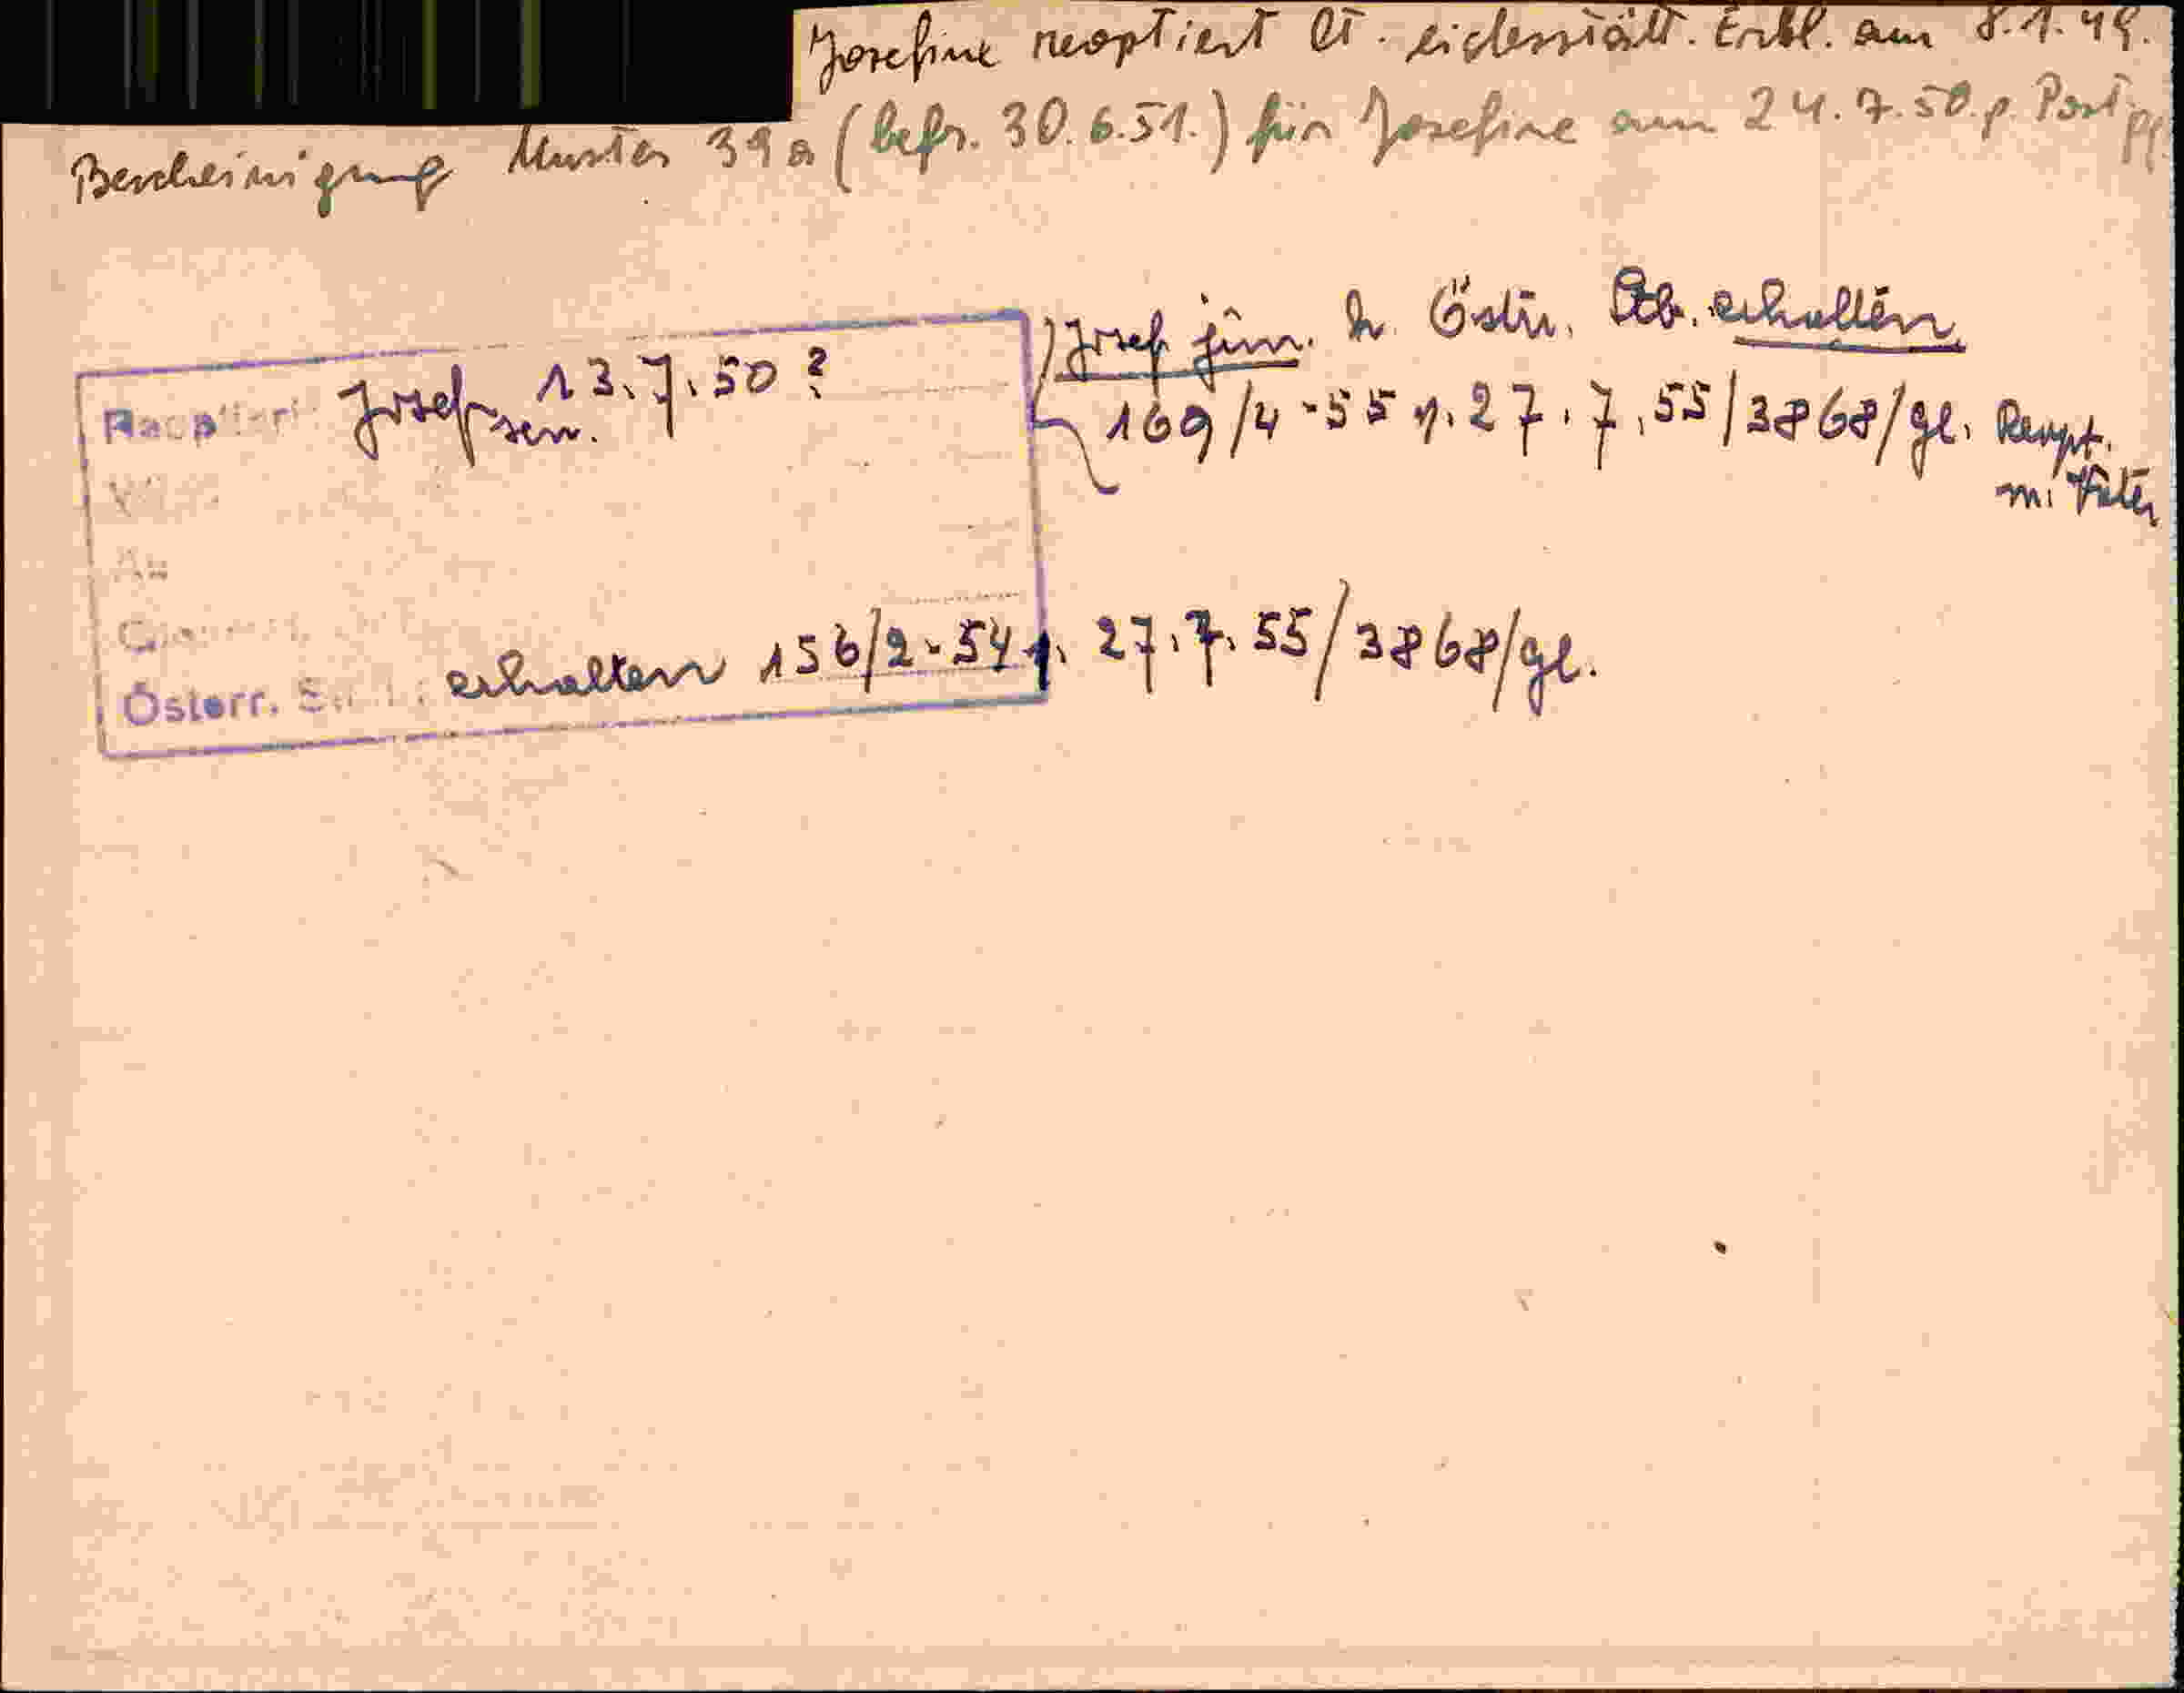 Josefine reoptiert lt. eidesstätt. Erkl. am 8.1.49.
Bescheinigung Muster 39a (befr. 30.6.51.) für Josefine am 24.7.50. p. Post
Josef jun. h. Östr. Stb. erhalten
Reoptiert: Josef sen. 13.7.50?
169/4-55 v. 27.7.55/3868/gl. Reopt.
m. Vater
Österr. erhalten 156/2-54 v. 27.7.55/3868/gl.